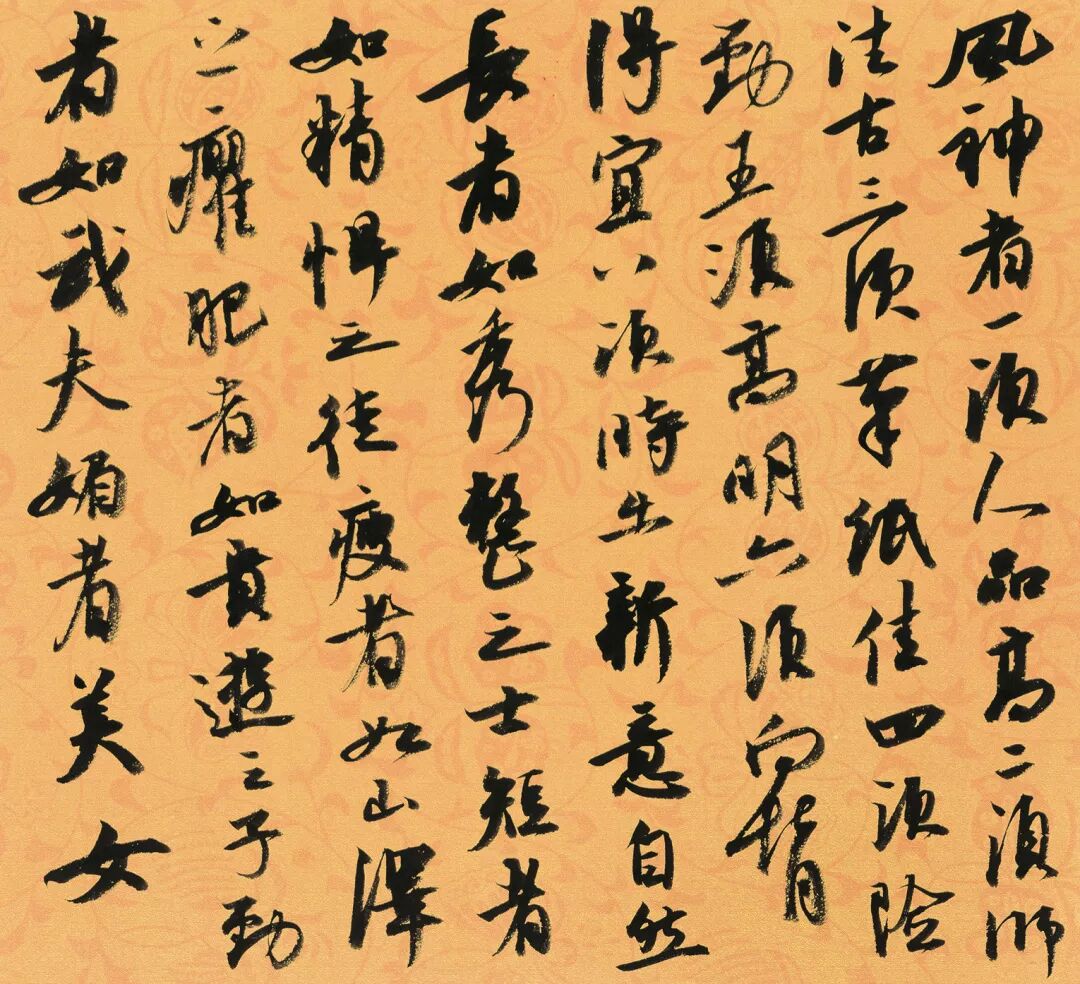 風神者一須人品高二須師
法古三須筆紙佳四須險
勁五須高明六須向背
得宜八須時出新意自然
長者如秀整之士短者
如精悍之徒瘦者如山澤
之癯肥者如貴遊之子勁
者如武夫媚者美女